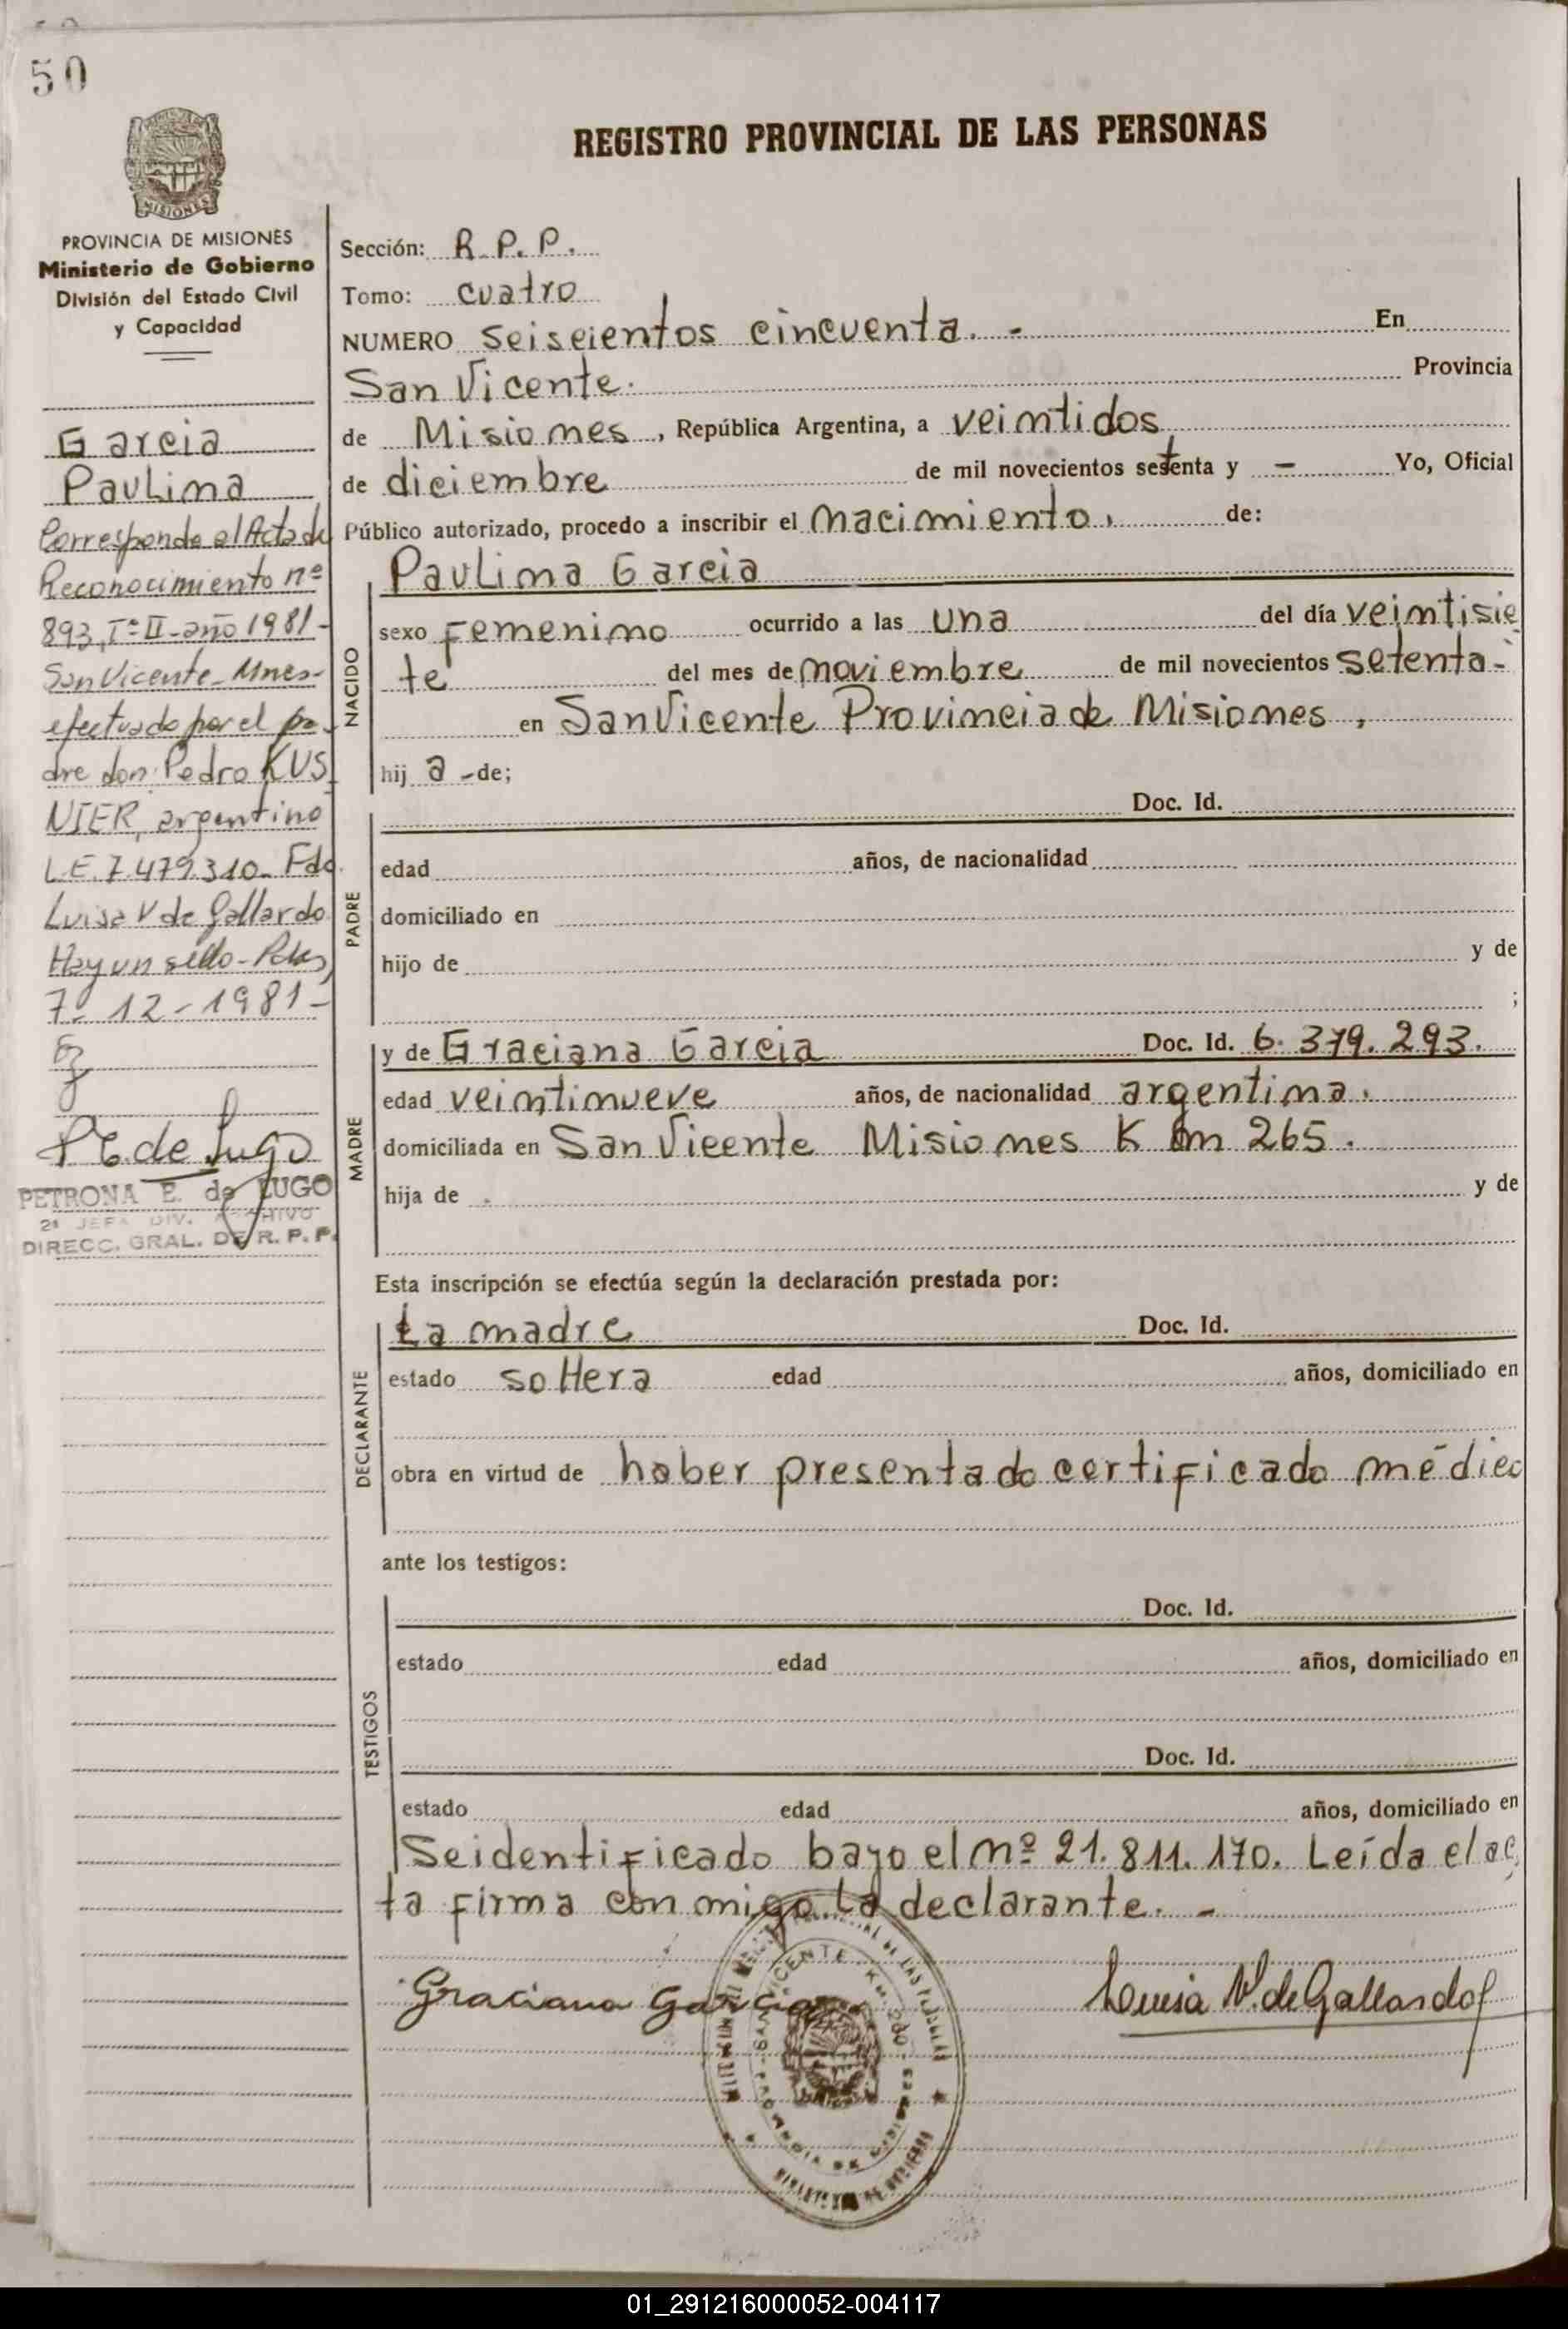 50
MISIONES
PROVINCIA DE MISIONES
Ministerio de Gobierno
División del Estado Civil
y Capacidad
Garcia
Paulina
Corresponde al Acta de
Reconocimiento nº
893, Tº II - año 1981 -
San Vicente - Mnes -
efectuado por el pa-
dre don: Pedro KUS
NIER, argentino
L.E. 7.479.310 - Fdo
Luisa V de Gallardo
Hay un sello -
7 - 12 - 1981 -
P E. de Lugo
PETRONA E. de LUGO
2ª JEFA DIV. ARCHIVO
DIRECC. GRAL. DE R. P. P.
REGISTRO PROVINCIAL DE LAS PERSONAS
Sección: R. P. P.
Tomo: cuatro
NUMERO seiscientos cincuenta. - En
San Vicente. Provincia
de Misiones, República Argentina, a veintidos
de diciembre de mil novecientos setenta y - Yo, Oficial
Público autorizado, procedo a inscribir el nacimiento, de:
Paulina Garcia
NACIDO
sexo femenino ocurrido a las una del día veintisie
te del mes de noviembre de mil novecientos setenta -
en San Vicente Provincia de Misiones,
hij a - de;
PADRE
Doc. Id.
edad años, de nacionalidad
domiciliado en
hijo de y de
;
MADRE
y de Graciana Garcia Doc. Id. 6. 379. 293.
edad veintinueve años, de nacionalidad argentina.
domiciliada en San Vicente Misiones K m 265.
hija de y de
Esta inscripción se efectúa según la declaración prestada por:
DECLARANTE
La madre Doc. Id.
estado soltera edad años, domiciliado en
obra en virtud de haber presentado certificado médico
ante los testigos:
TESTIGOS
Doc. Id.
estado edad años, domiciliado en
Doc. Id.
estado edad años, domiciliado en
Se identificado bajo el nº 21. 811. 170. Leída el ac
ta firma con migo la declarante. -
Graciana Garcia
Luisa V. de Gallardo
SAN VICENTE - KM 280
PROVINCIA DE MISIONES
MINISTERIO DE GOBIERNO
01_291216000052-004117